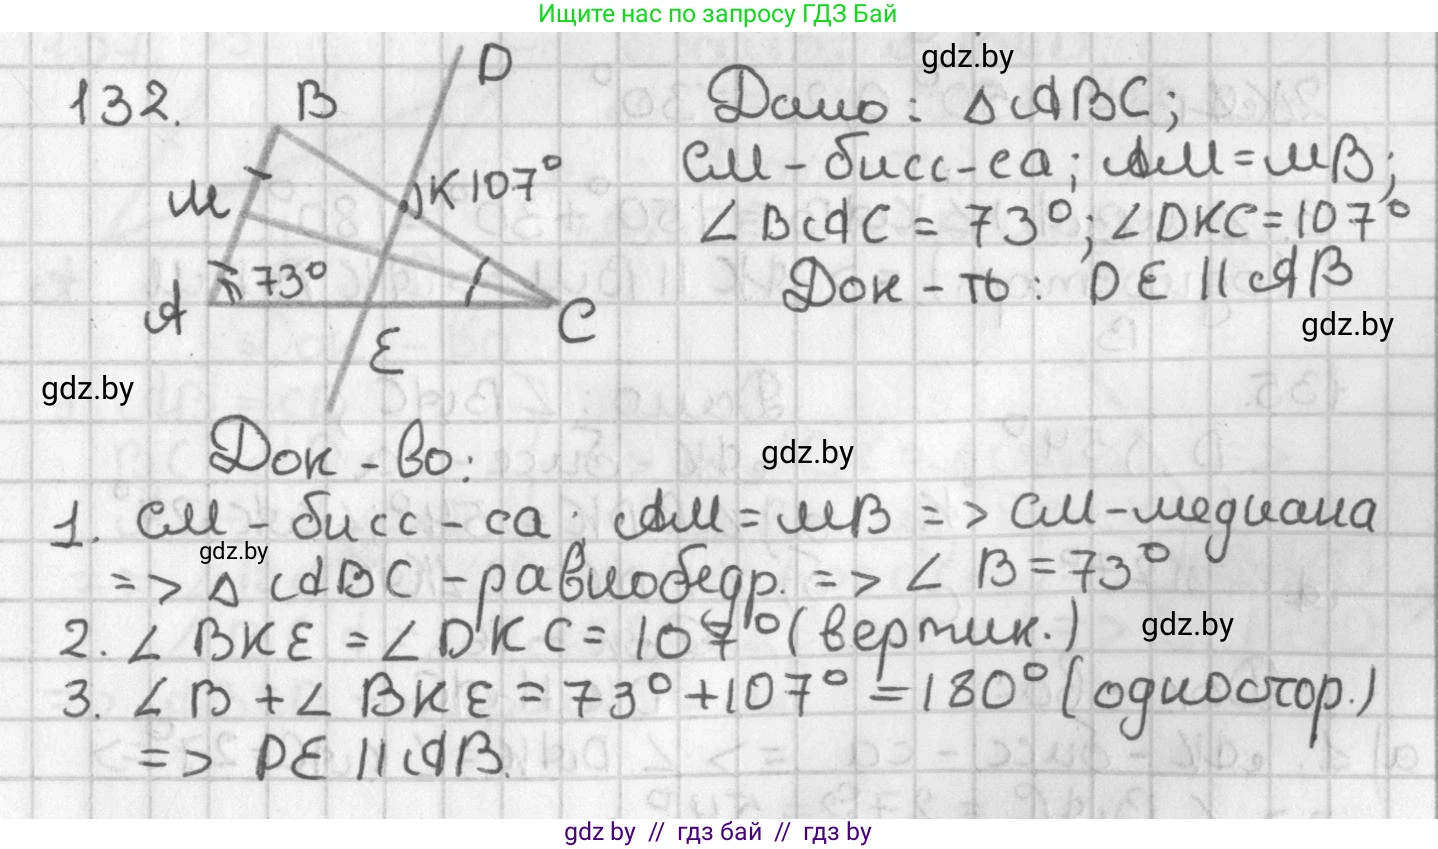 Ищите нас по запросу ГДЗ Бай
132.
D
B
K 107°
M
73°
A
E
C
gdz.by
Дано: △ABC;
CM - бисс-са; AM = MB;
∠BAC = 73°; ∠DKC = 107°
Док - ть: DE || AB
gdz.by
gdz.by
Док - во:
gdz.by
1. CM - бисс - са; AM = MB => CM - медиана
gdz.by
=> △ABC - равнобедр. => ∠ B = 73°
2. ∠ BKE = ∠ DKC = 107° (вертик.)
gdz.by
3. ∠ B + ∠ BKE = 73° + 107° = 180° (одностор.)
=> DE || AB.
gdz by // гдз бай // гдз by